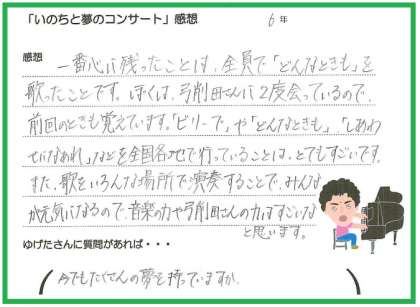 「いのちと夢のコンサート」感想 6年
感想
一番心に残ったことは、全員で「どんなときも」を
歌ったことです。ぼくは、弓削田さんに2度会っているので、
前回のときも覚えています。「ビリーブ」や「どんなときも」、「しあわ
せになあれ」などを全国各地で行っていることは、とてもすごいです。
また、歌をいろんな場所で演奏することで、みんな
が元気になるので、音楽の力や弓削田さんの力はすごいな
と思います。
ゆげたさんに質問があれば・・・
(今でもたくさんの夢を持っていますか。